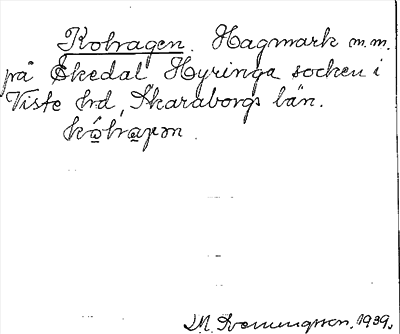 Kohagen. Hagmark m.m.
på Skedal Hyringa socken i
Viste hd, Skaraborgs län.
M. Svenungsson. 1939.